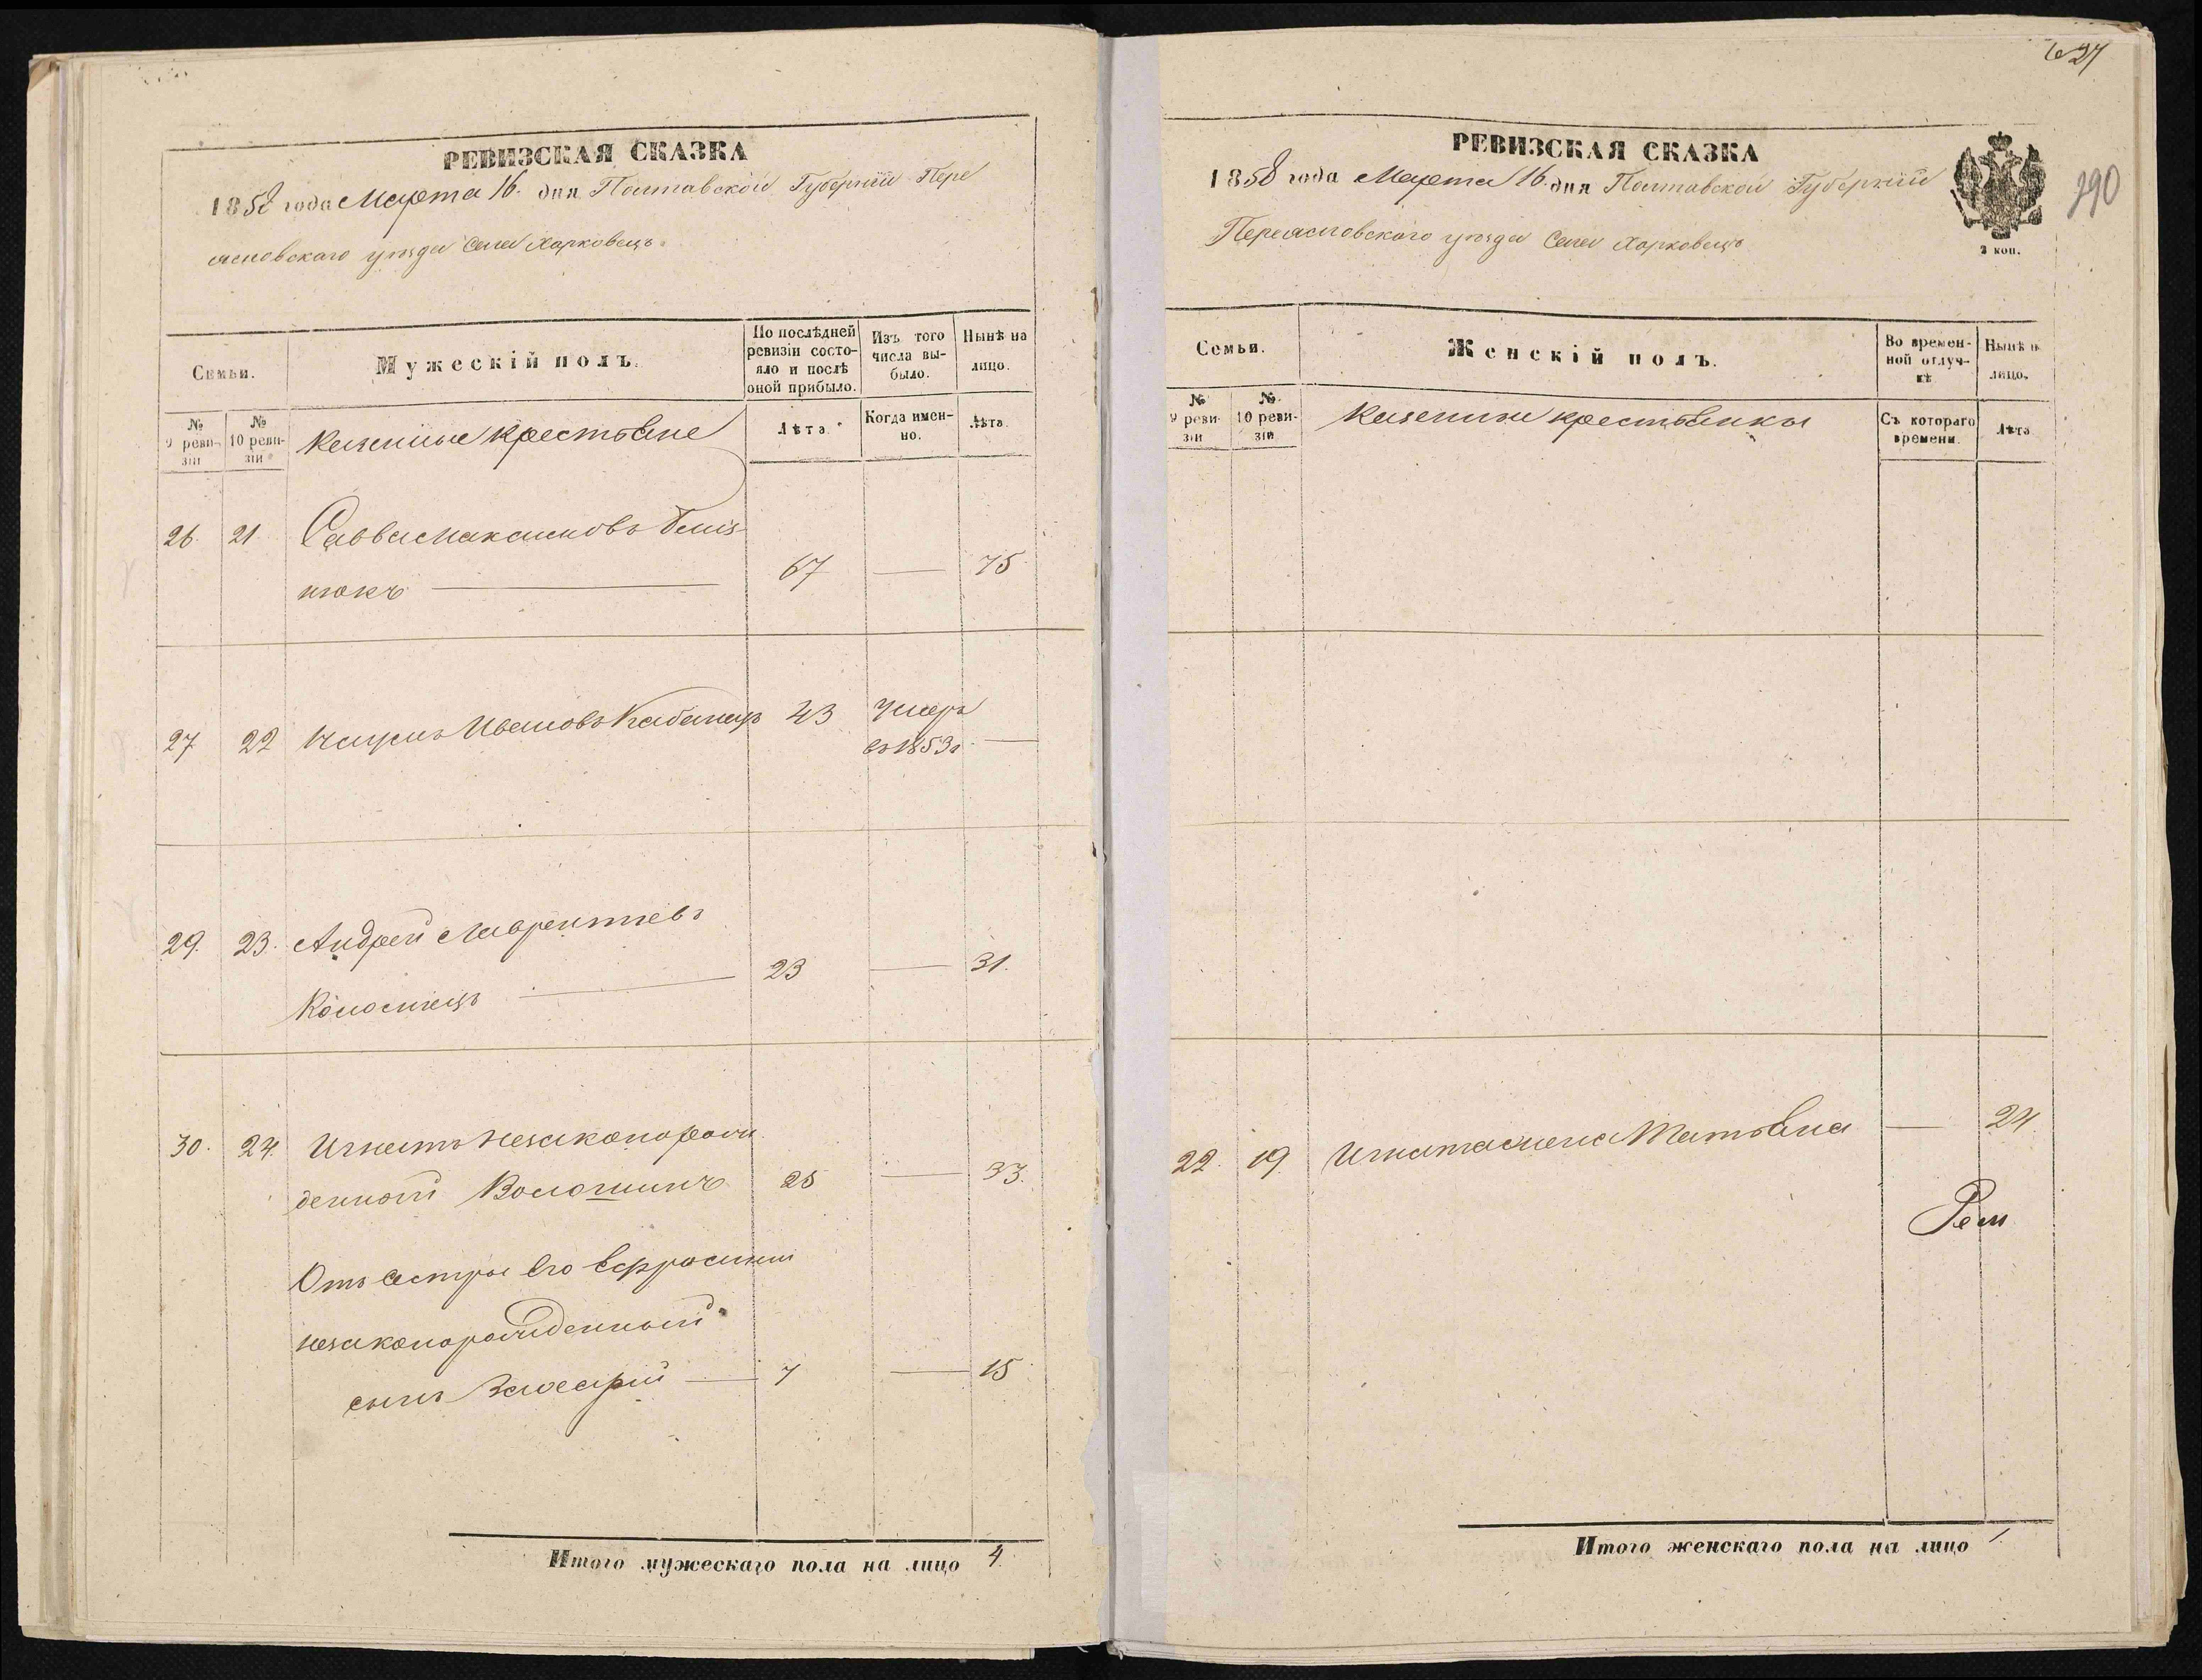 РЕВИЗСКАЯ СКАЗКА
1858 года Марта 16. дня Полтавской Губерніи Пере
яславского уезда Села Харковецъ.
Семьи.
Мужескій полъ.
По послѣдней ревизіи состояло и послѣ оной прибыло.
Изъ того числа выбыло.
Нынѣ на лицо.
№ 9 ревизіи
№ 10 ревизіи
Казенные крестьяне
Лѣта.
Когда именно.
Лѣта.
26. 21 Савва Максимовъ
нюкъ 67 — 75
27 22 Ивановъ Кабанецъ 43 Умеръ
въ 1853г. —
29. 23. Андрей Лаврентіевъ
Коломіецъ 23 — 31.
30. 24. Игнатъ Незаконорож
денной Волошинъ 25 — 33.
Отъ сестры его Ефросиніи
незаконорожденной
сынъ 7 — 15
Итого мужескаго пола на лицо 4
627
290
РЕВИЗСКАЯ СКАЗКА
1858 года Марта 16. дня Полтавской Губерніи
Переяславского уезда Села Харковецъ
3 коп.
Семьи.
Женскій полъ.
Во временной отлучкѣ
Нынѣ на лицо.
№ 9 ревизіи
№ 10 ревизіи
Казенные крестьянки
Съ котораго времени.
Лѣта
22. 19. Игната жена Татьяна — 24
Итого женскаго пола на лицо 1.